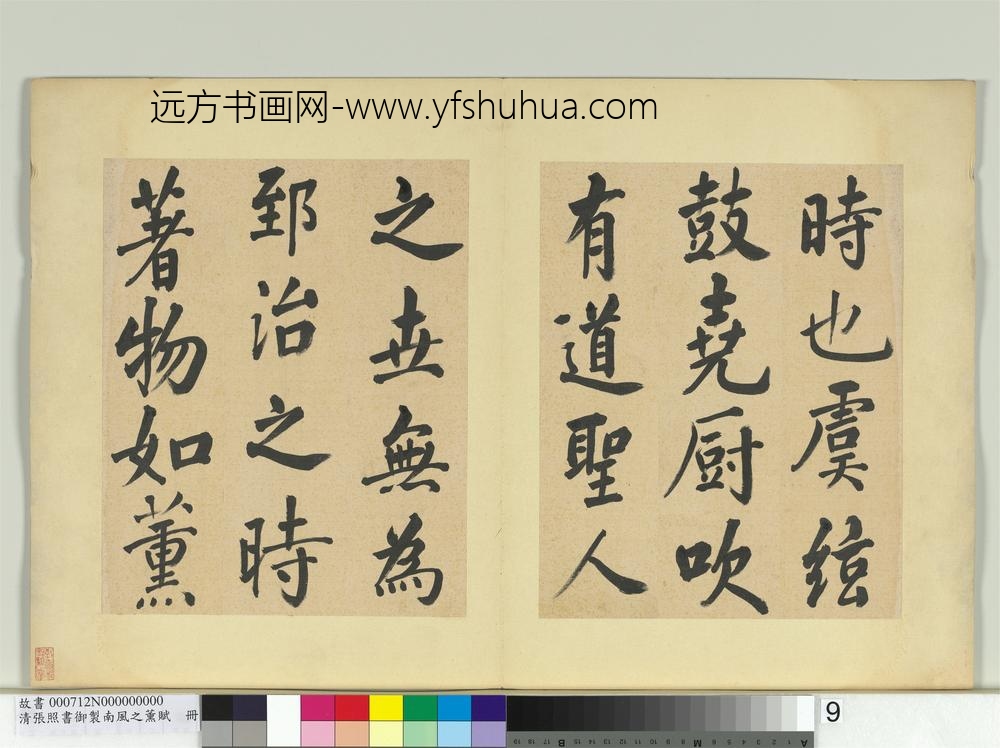 远方书画网-www.yfshuhua.com
時也虞絃
鼓堯厨吹
有道聖人
之世無為
郅治之時
著物如薰
故書 000712N000000000
清張照書御製南風之薰賦 冊
9